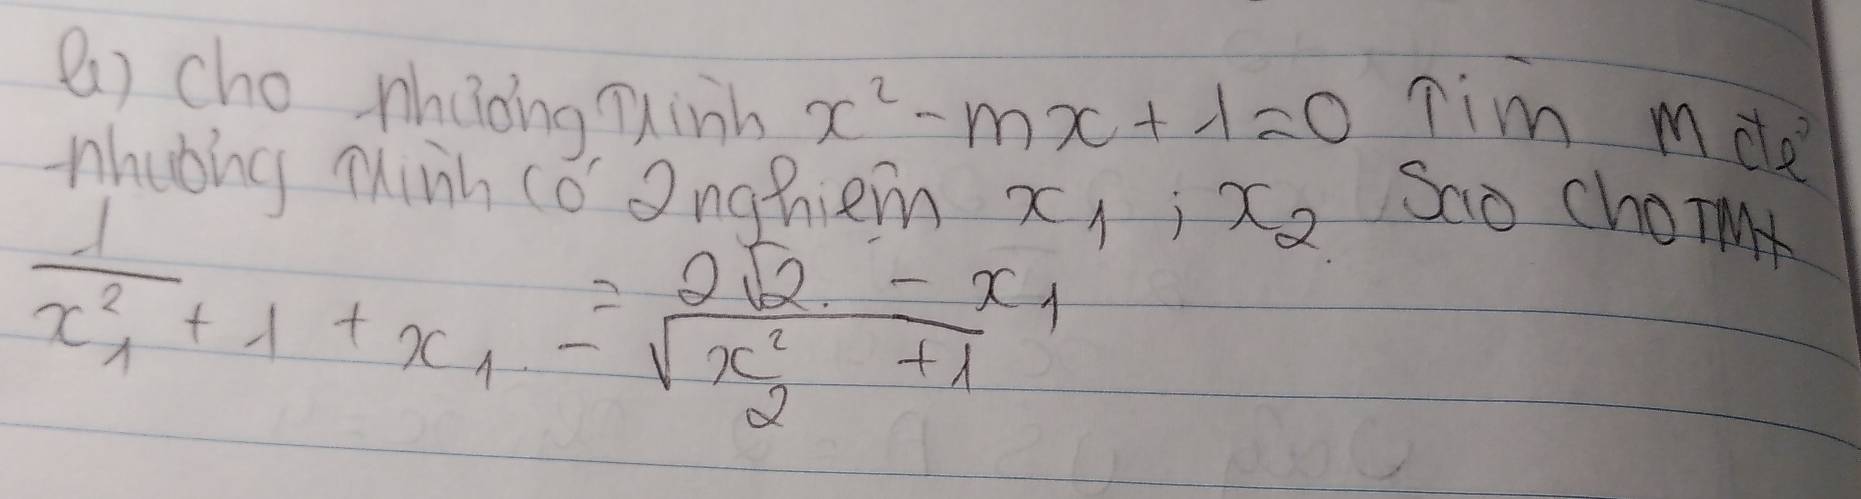 a) Cho phương trình x² - mx + 1 = 0 Tìm m để
phương trình có 2 nghiệm x₁ ; x₂ sao cho TM+
1/x₁² + 1 + x₁ = 2√2 - x₁ / √(x₂² + 1)